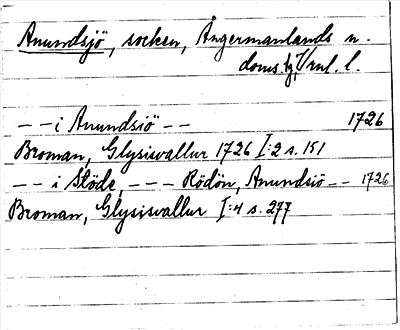 Anundsjö, socken, Ångermanlands n.
doms tg, Vnl. l.
-- i Anundsiö -- 1726
Broman, Glysisvallur 1726 I:2 s. 151
-- i Stöde, --- Rödön, Anundsiö -- 1726
Broman, Glysisvallur I:4 s. 277